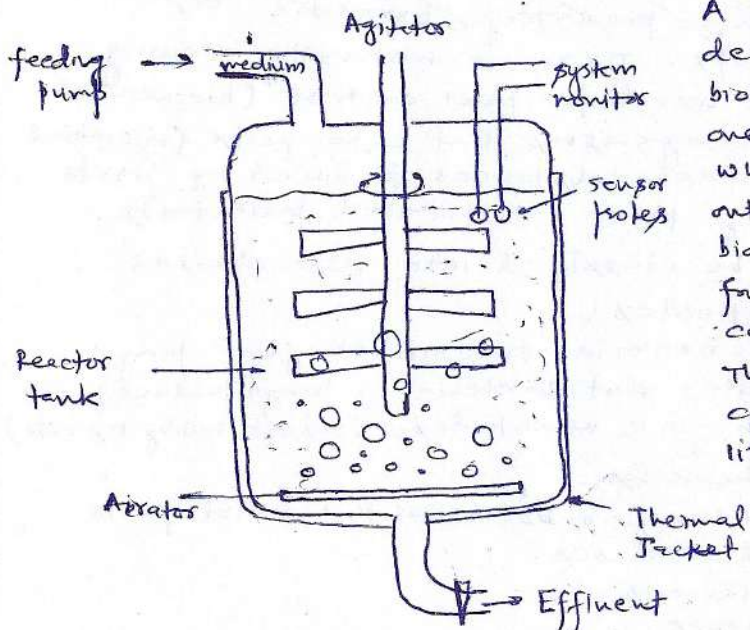 Agitator
feeding
pump
medium
system
monitor
sensor
Reactor
tank
Aerator
Thermal
Jacket
Effluent
A
de
bio
one
wh
out
bio
fo
co
Th
c
lit